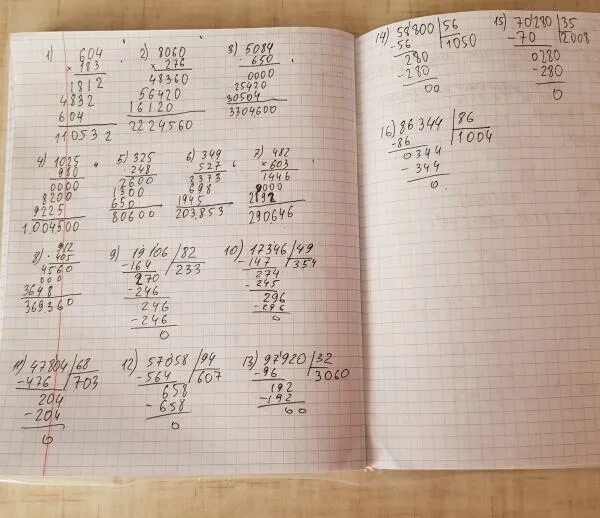 1) 604
× 183
1812
4832
604
110532
2) 8060
× 276
48360
56420
16120
2224560
3) 5084
· 650
0000
25420
30504
3304600
4) 1025
980
0000
8200
9225
1.004500
5) 325
248
2600
1300
650
80600
6) 349
527
2373
698
1945
203.853
7) 482
× 603
1446
0000
2892
290646
8) · 912
405
4560
000
3648
369360
9) 19106 / 82
-164 233
270
-246
246
-246
0
10) 17346 / 49
-147 354
274
-245
296
-296
0
11) 47804 / 68
-476 703
204
-204
0
12) 57058 / 94
-564 607
658
-658
0
13) 97920 / 32
-96 3060
192
-192
00
14) 58800 / 56
-56 1050
280
-280
00
15) 70280 / 35
-70 2008
0280
-280
0
16) 86344 / 86
-86 1004
0344
-344
0.